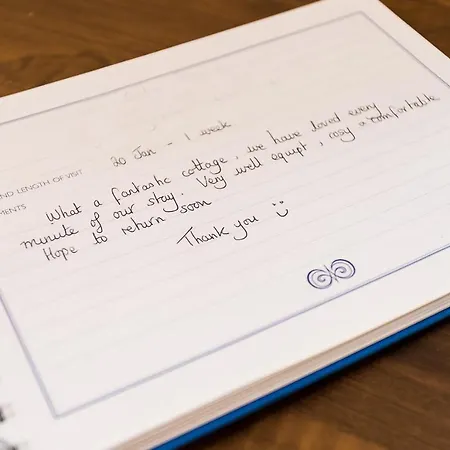 20 Jan - 1 week
ND LENGTH OF VISIT
MENTS
What a fantastic cottage, we have loved every
minute of our stay. Very well equipt, cosy & comfortable
Hope to return soon
Thank you :)